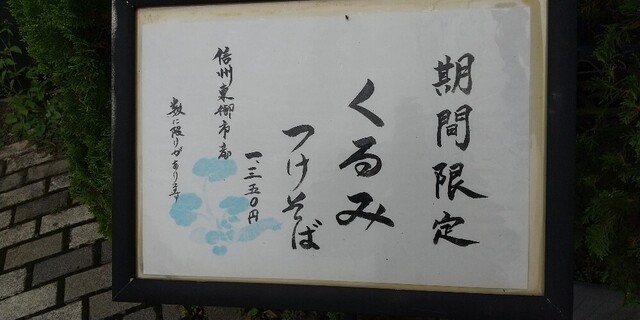 期間限定
くるみ
つけそば
一、三五〇円
信州東御市産
数に限りがあります